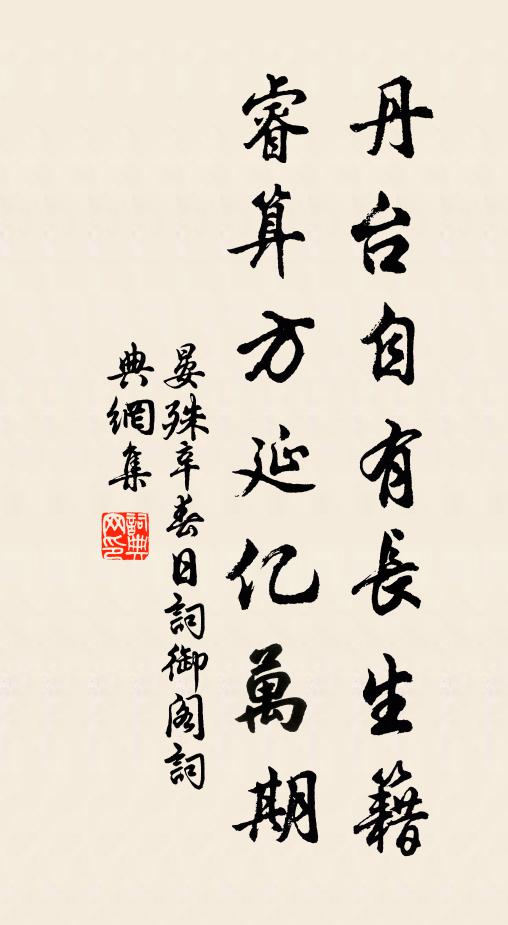 丹台自有長生籍
睿算方延亿萬期
晏殊辛春日詞御阁詞
典網集
詞典网印